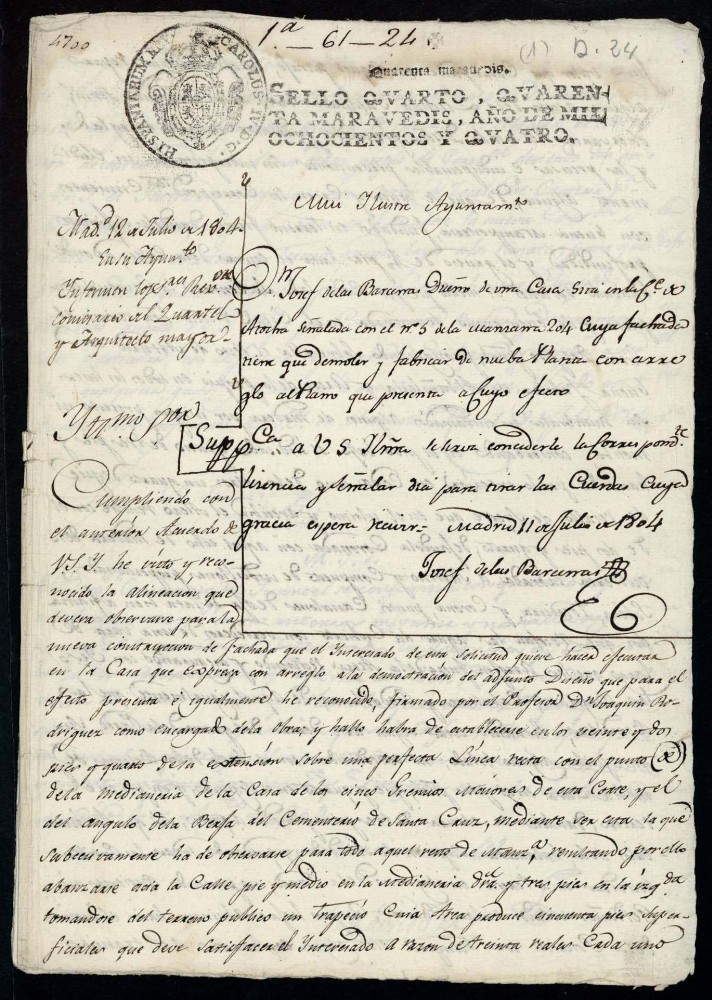 4700
1ª - 61 - 24
(1) D. 24
HISPANIARUM REX CAROLUS IV D. G.
Quarenta maravedis.
SELLO QVARTO, QVAREN-
TA MARAVEDIS, AÑO DE MIL
OCHOCIENTOS Y QVATRO.
Mui Ilustre Ayuntamto
Madd 12 de Julio de 1804
En su Ayunto
Informen los
comisario del Quartel
y Arquitecto mayor
Dn Josef de las Barcenas Dueño de una Casa sita en la Ce de
Atocha señalada con el nº 5 de la manzana 204 Cuya fachada
tiene que demoler y fabricar de nueba Planta con arre
glo al Plano que presenta a Cuyo efecto
Suppca a V S Ilma se sirva concederle la Correspondte
licencia y señalar dia para tirar las Cuerdas Cuya
gracia espera recivir Madrid 11 de Julio de 1804
Josef de las Barcenas
Ytmo Sor
Cumpliendo con
el anterior Acuerdo de
V.S.Y. he visto y reco-
nocido la alineacion que
devera observarse para la
nueva construccion de fachada que el Interesado de esta solicitud quiere hacer efectuar
en la Casa que expresa con arreglo a la demostracion del adjunto Diseño que para el
efecto presenta e igualmente he reconocido, firmado por el Profesor Dn Joaquin Ro-
driguez como encargado de la obra; y hallo habra de establecerse en los veinte y dos
pies y quarto de su extension sobre una perfecta Linea recta con el punto (X)
de la medianeria de la Casa de los cinco Gremios Maiores de esta Corte, y el
del angulo de la Berja del Cementerio de Santa Cruz, mediante ser esta la que
subcecivamente ha de observarse para todo aquel resto de Manza, resultando por ello
abanzarse acia la Calle pie y medio en la Medianeria dra y tres pies en la izqda
tomandose del terreno publico un trapecio Cuia Area produce cincuenta pies super-
ficiales que deve satisfacer el Interesado a razon de treinta reales Cada uno